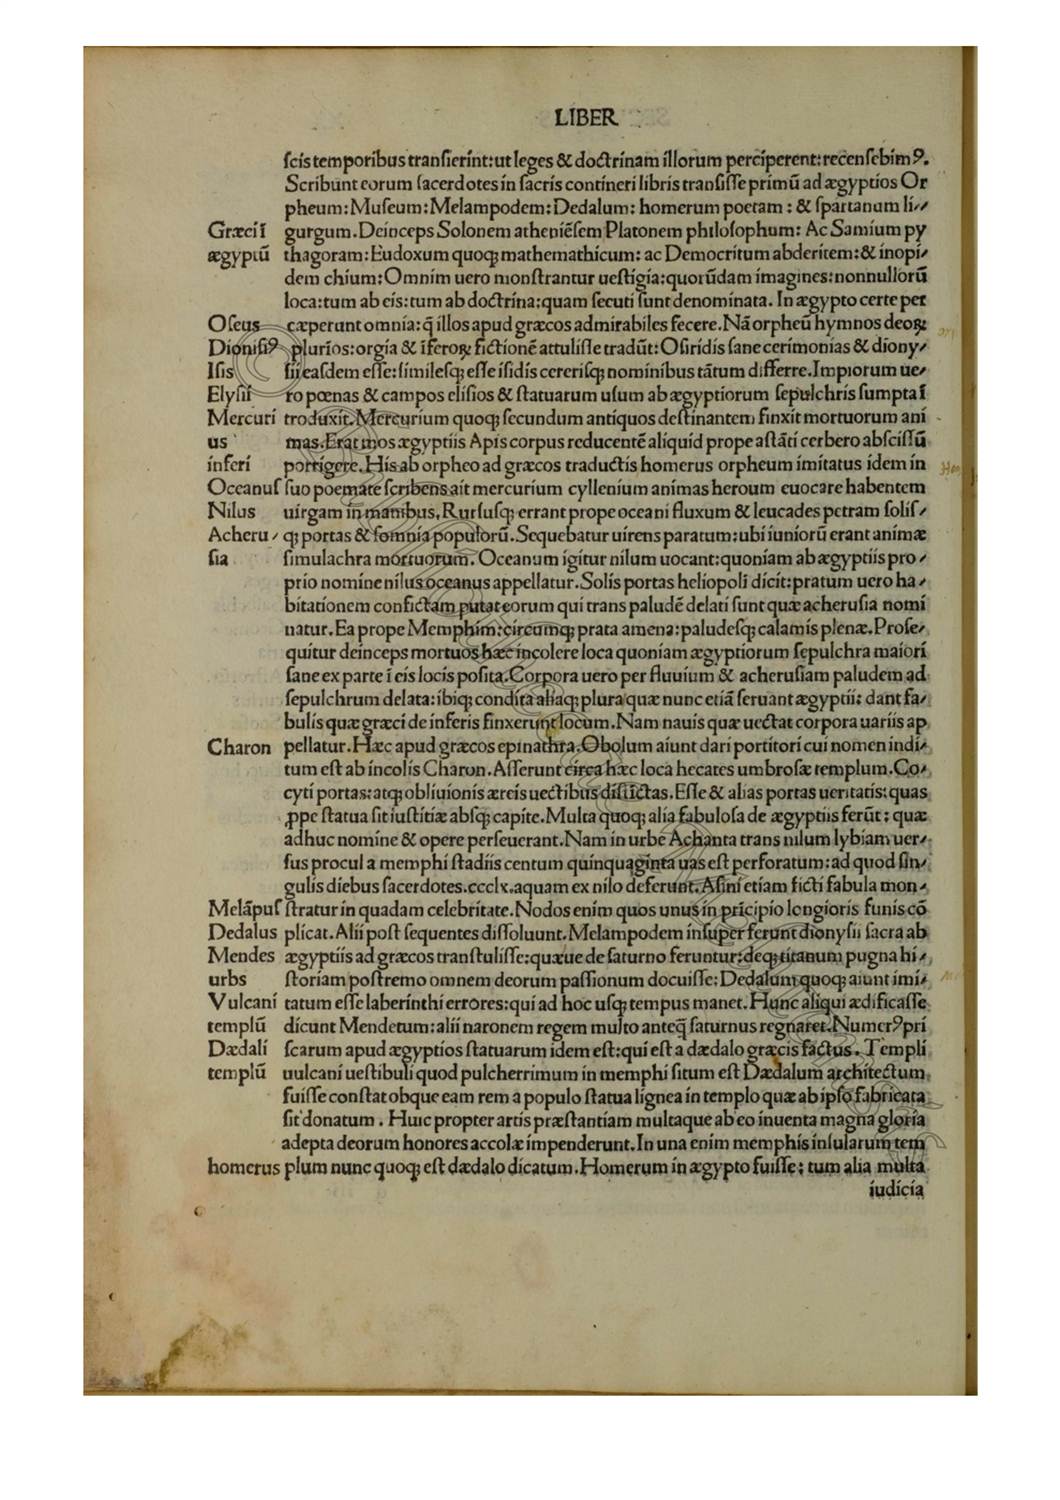 LIBER
ſcis temporibus tranſierint: ut leges & doctrinam illorum perciperent: recenſebimꝰ.
Scribunt eorum ſacerdotes in ſacris contineri libris tranſiſſe primū ad ægyptios Or
pheum: Muſeum: Melampodem: Dedalum: homerum poetam: & ſpartanum li⸗
Græci ī gurgum. Deinceps Solonem atheniēſem Platonem philoſophum: Ac Samium py
ægyptū thagoram: Eudoxum quoqꝫ mathemathicum: ac Democritum abderitem: & inopi⸗
dem chium: Omnim uero monſtrantur ueſtigia: quorūdam imagines: nonnullorū
loca: tum ab eis: tum ab doctrina: quam ſecuti ſunt denominata. In ægypto certe per
Oſeus cæperunt omnia: q̄ illos apud græcos admirabiles fecere. Nā orpheū hymnos deoꝝ
Dioniſiꝰ plurios: orgia & īferoꝝ fictionē attuliſſe tradūt: Oſiridis ſane cerimonias & diony⸗
Iſis ſii eaſdem eſſe: ſimileſqꝫ eſſe iſidis cereriſqꝫ nominibus tātum differre. Impiorum ue⸗
Elyſii ro pœnas & campos eliſios & ſtatuarum uſum ab ægyptiorum ſepulchris ſumpta ī
Mercuri troduxit. Mercurium quoqꝫ ſecundum antiquos deſtinantem finxit mortuorum ani
us mas. Erat mos ægyptiis Apis corpus reducentē aliquid prope aſtāti cerbero abſciſſū
inferi porrigere. His ab orpheo ad græcos traductis homerus orpheum imitatus idem in
Oceanuſ ſuo poemate ſcribens ait mercurium cyllenium animas heroum euocare habentem
Nilus uirgam in manibus. Rurſuſqꝫ errant prope oceani fluxum & leucades petram ſoliſ⸗
Acheru⸗ qꝫ portas & ſomnia populorū. Sequebatur uirens paratum: ubi iuniorū erant animæ
ſia ſimulachra mortuorum. Oceanum igitur nilum uocant: quoniam ab ægyptiis pro⸗
prio nomine nilus oceanus appellatur. Solis portas heliopoli dicit: pratum uero ha⸗
bitationem confictam putat eorum qui trans paludē delati ſunt quæ acheruſia nomi
natur. Ea prope Memphim: circumqꝫ prata amena: paludeſqꝫ calamis plenæ. Proſe⸗
quitur deinceps mortuos hæc incolere loca quoniam ægyptiorum ſepulchra maiori
ſane ex parte ī eis locis poſita. Corpora uero per fluuium & acheruſiam paludem ad
ſepulchrum delata: ibiqꝫ condita aliaqꝫ plura quæ nunc etiā ſeruant ægyptii: dant fa⸗
bulis quæ græci de inferis finxerunt locum. Nam nauis quæ uectat corpora uariis ap
Charon pellatur. Hæc apud græcos epinathra. Obolum aiunt dari portitori cui nomen indi⸗
tum eſt ab incolis Charon. Aſſerunt circa hæc loca hecates umbroſæ templum. Co⸗
cyti portas: atqꝫ obliuionis æreis uectibus diſiūctas. Eſſe & alias portas ueritatis: quas
ꝓpe ſtatua ſit iuſtitiæ abſqꝫ capite. Multa quoqꝫ alia fabuloſa de ægyptiis ferūt: quæ
adhuc nomine & opere perſeuerant. Nam in urbe Achanta trans nilum lybiam uer⸗
ſus procul a memphi ſtadiis centum quinquaginta uas eſt perforatum: ad quod ſin⸗
gulis diebus ſacerdotes .ccclx. aquam ex nilo deferunt. Aſini etiam ficti fabula mon⸗
Melāpuſ ſtratur in quadam celebritate. Nodos enim quos unus in prīcipio longioris funis cō
Dedalus plicat. Alii poſt ſequentes diſſoluunt. Melampodem inſuper ferunt dionyſii ſacra ab
Mendes ægyptiis ad græcos tranſtuliſſe: quæue de ſaturno feruntur: deqꝫ titanum pugna hi⸗
urbs ſtoriam poſtremo omnem deorum paſſionum docuiſſe: Dedalum quoqꝫ aiunt imi⸗
Vulcani tatum eſſe laberinthi errores: qui ad hoc uſqꝫ tempus manet. Hunc aliqui ædificaſſe
templū dicunt Mendetum: alii naronem regem multo anteq̄ ſaturnus regnaret. Numerꝰ pri
Dædali ſcarum apud ægyptios ſtatuarum idem eſt: qui eſt a dædalo græcis factus. Templi
templū uulcani ueſtibuli quod pulcherrimum in memphi ſitum eſt Dædalum architectum
fuiſſe conſtat obque eam rem a populo ſtatua lignea in templo quæ ab ipſo fabricata
ſit donatum. Huic propter artis præſtantiam multaque ab eo inuenta magna gloria
adepta deorum honores accolæ impenderunt. In una enim memphis inſularum tem
homerus plum nunc quoqꝫ eſt dædalo dicatum. Homerum in ægypto fuiſſe: tum alia multa
iudicia